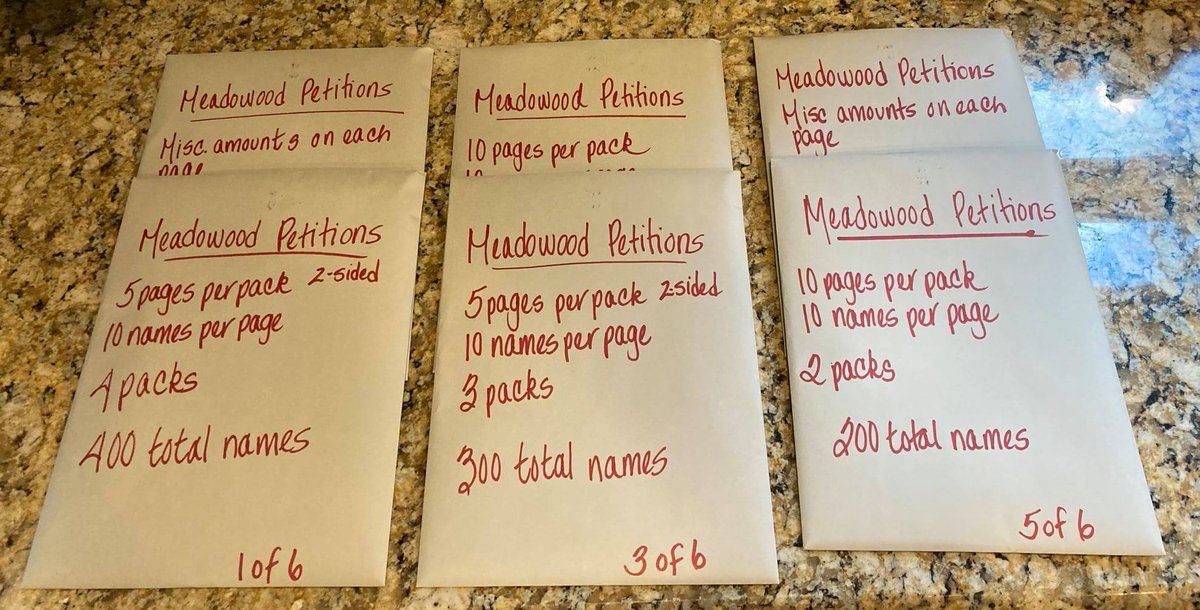 Meadowood Petitions
Misc. amounts on each
page
Meadowood Petitions
10 pages per pack
Meadowood Petitions
Misc amounts on each
page
Meadowood Petitions
5 pages per pack 2-sided
10 names per page
4 packs
400 total names
1 of 6
Meadowood Petitions
5 pages per pack 2sided
10 names per page
3 packs
300 total names
3 of 6
Meadowood Petitions
10 pages per pack
10 names per page
2 packs
200 total names
5 of 6